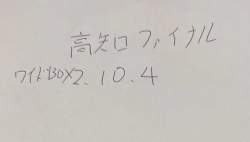 高知ファイナル
ワイドBOX2.10.4